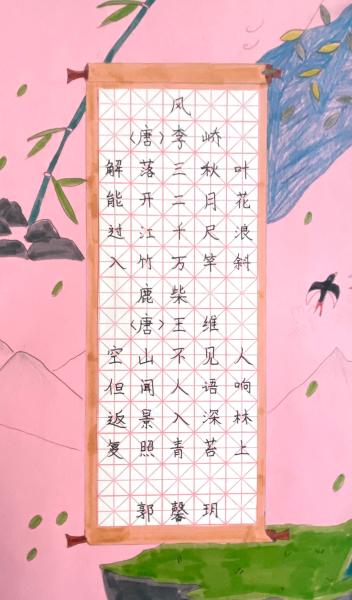 风
（唐）李峤
解落三秋叶
能开二月花
过江千尺浪
入竹万竿斜
鹿柴
（唐）王维
空山不见人
但闻人语响
返景入深林
复照青苔上
郭馨玥